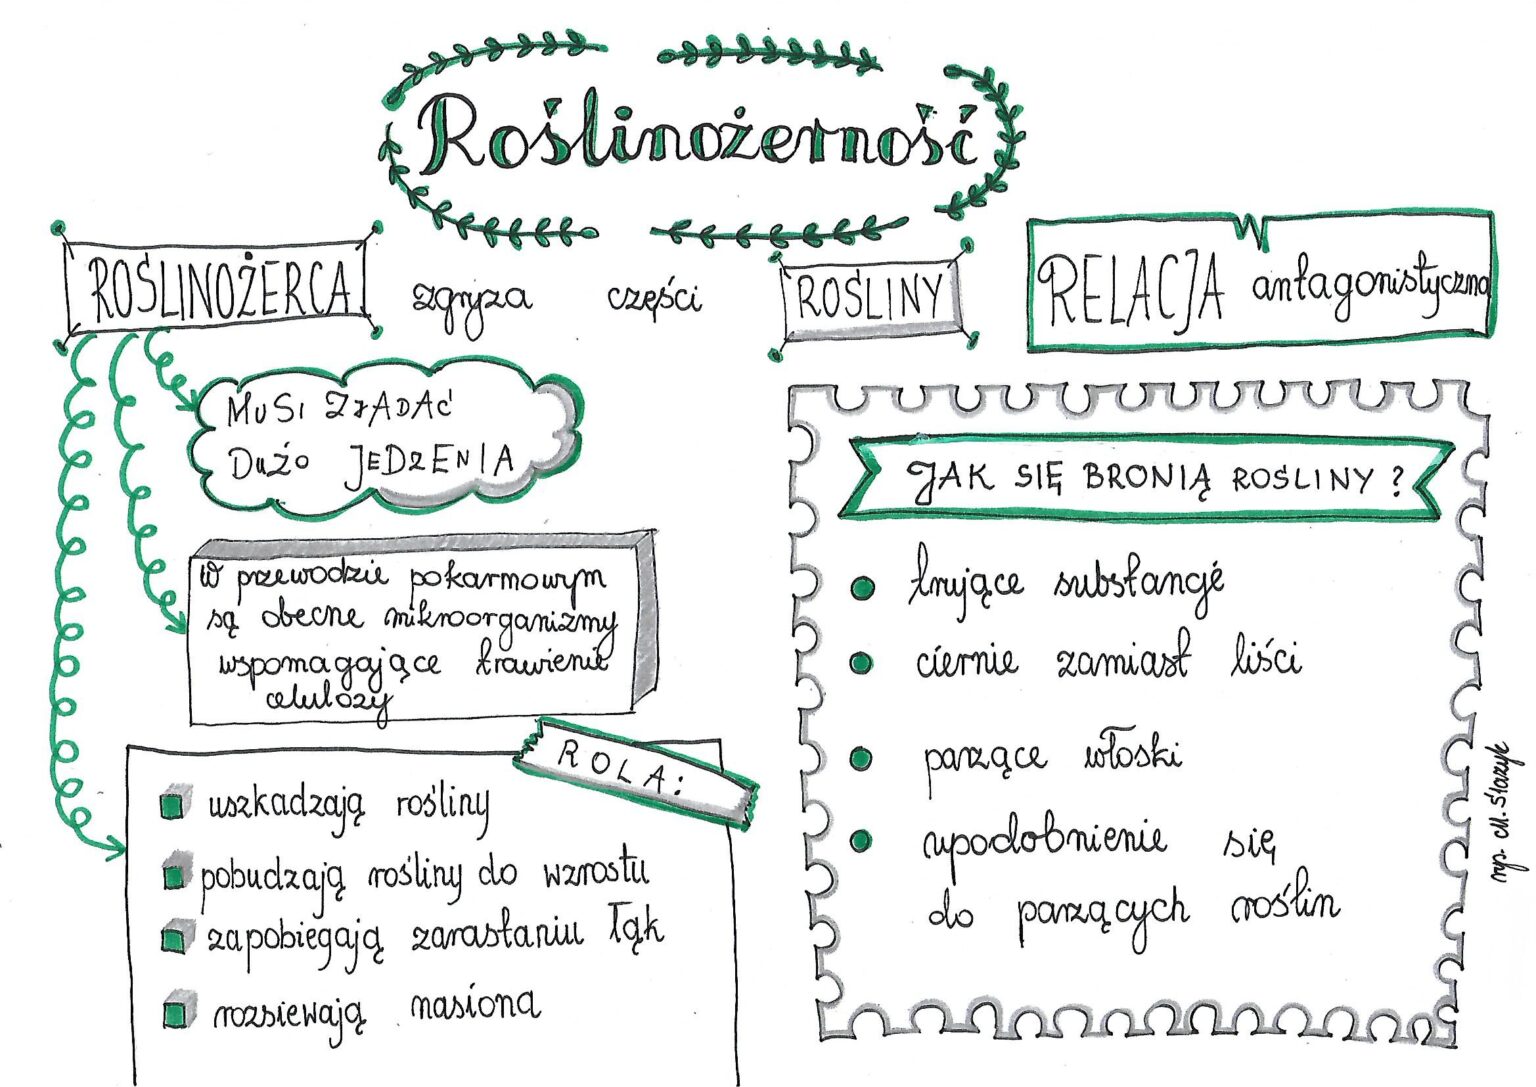 Roślinożerność
ROŚLINOŻERCA zgryza części ROŚLINY
RELACJA antagonistyczna
MUSI ZJADAĆ
DUŻO JEDZENIA
W przewodzie pokarmowym
są obecne mikroorganizmy
wspomagające trawienie
celulozy
ROLA:
uszkadzają rośliny
pobudzają rośliny do wzrostu
zapobiegają zarastaniu łąk
rozsiewają nasiona
JAK SIĘ BRONIĄ ROŚLINY?
trujące substancje
ciernie zamiast liści
parzące włoski
upodobnienie się
do parzących roślin
ryp. M. Starzyk